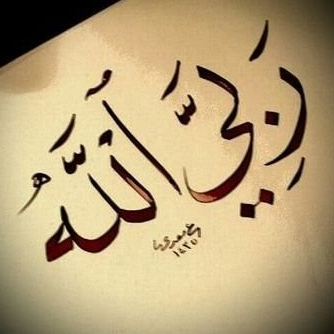 رَبِّيَ ٱللَّهُ
١٤٣٥